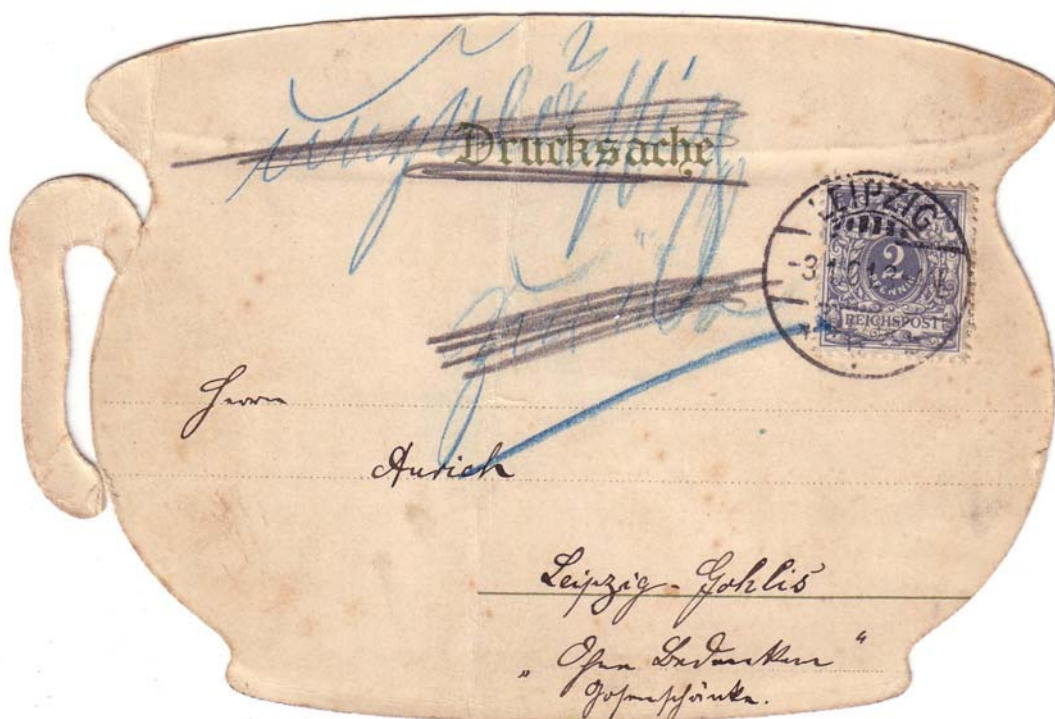 Drucksache
LEIPZIG
2
REICHSPOST
Herrn
Aurich
Leipzig-Gohlis
„Ohne Bedenken“
Gosenschänke.